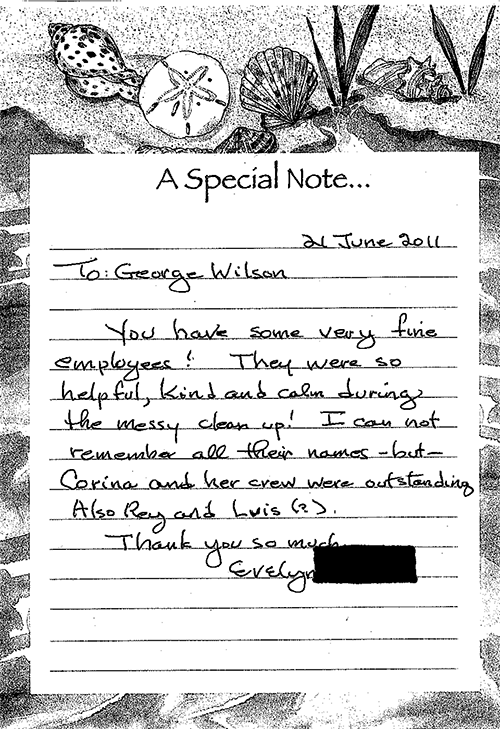 A Special Note...
21 June 2011
To: George Wilson
You have some very fine
employees! They were so
helpful, kind and calm during
the messy clean up! I can not
remember all their names -but-
Corina and her crew were outstanding
Also Rey and Luis (?).
Thank you so much
Evelyn